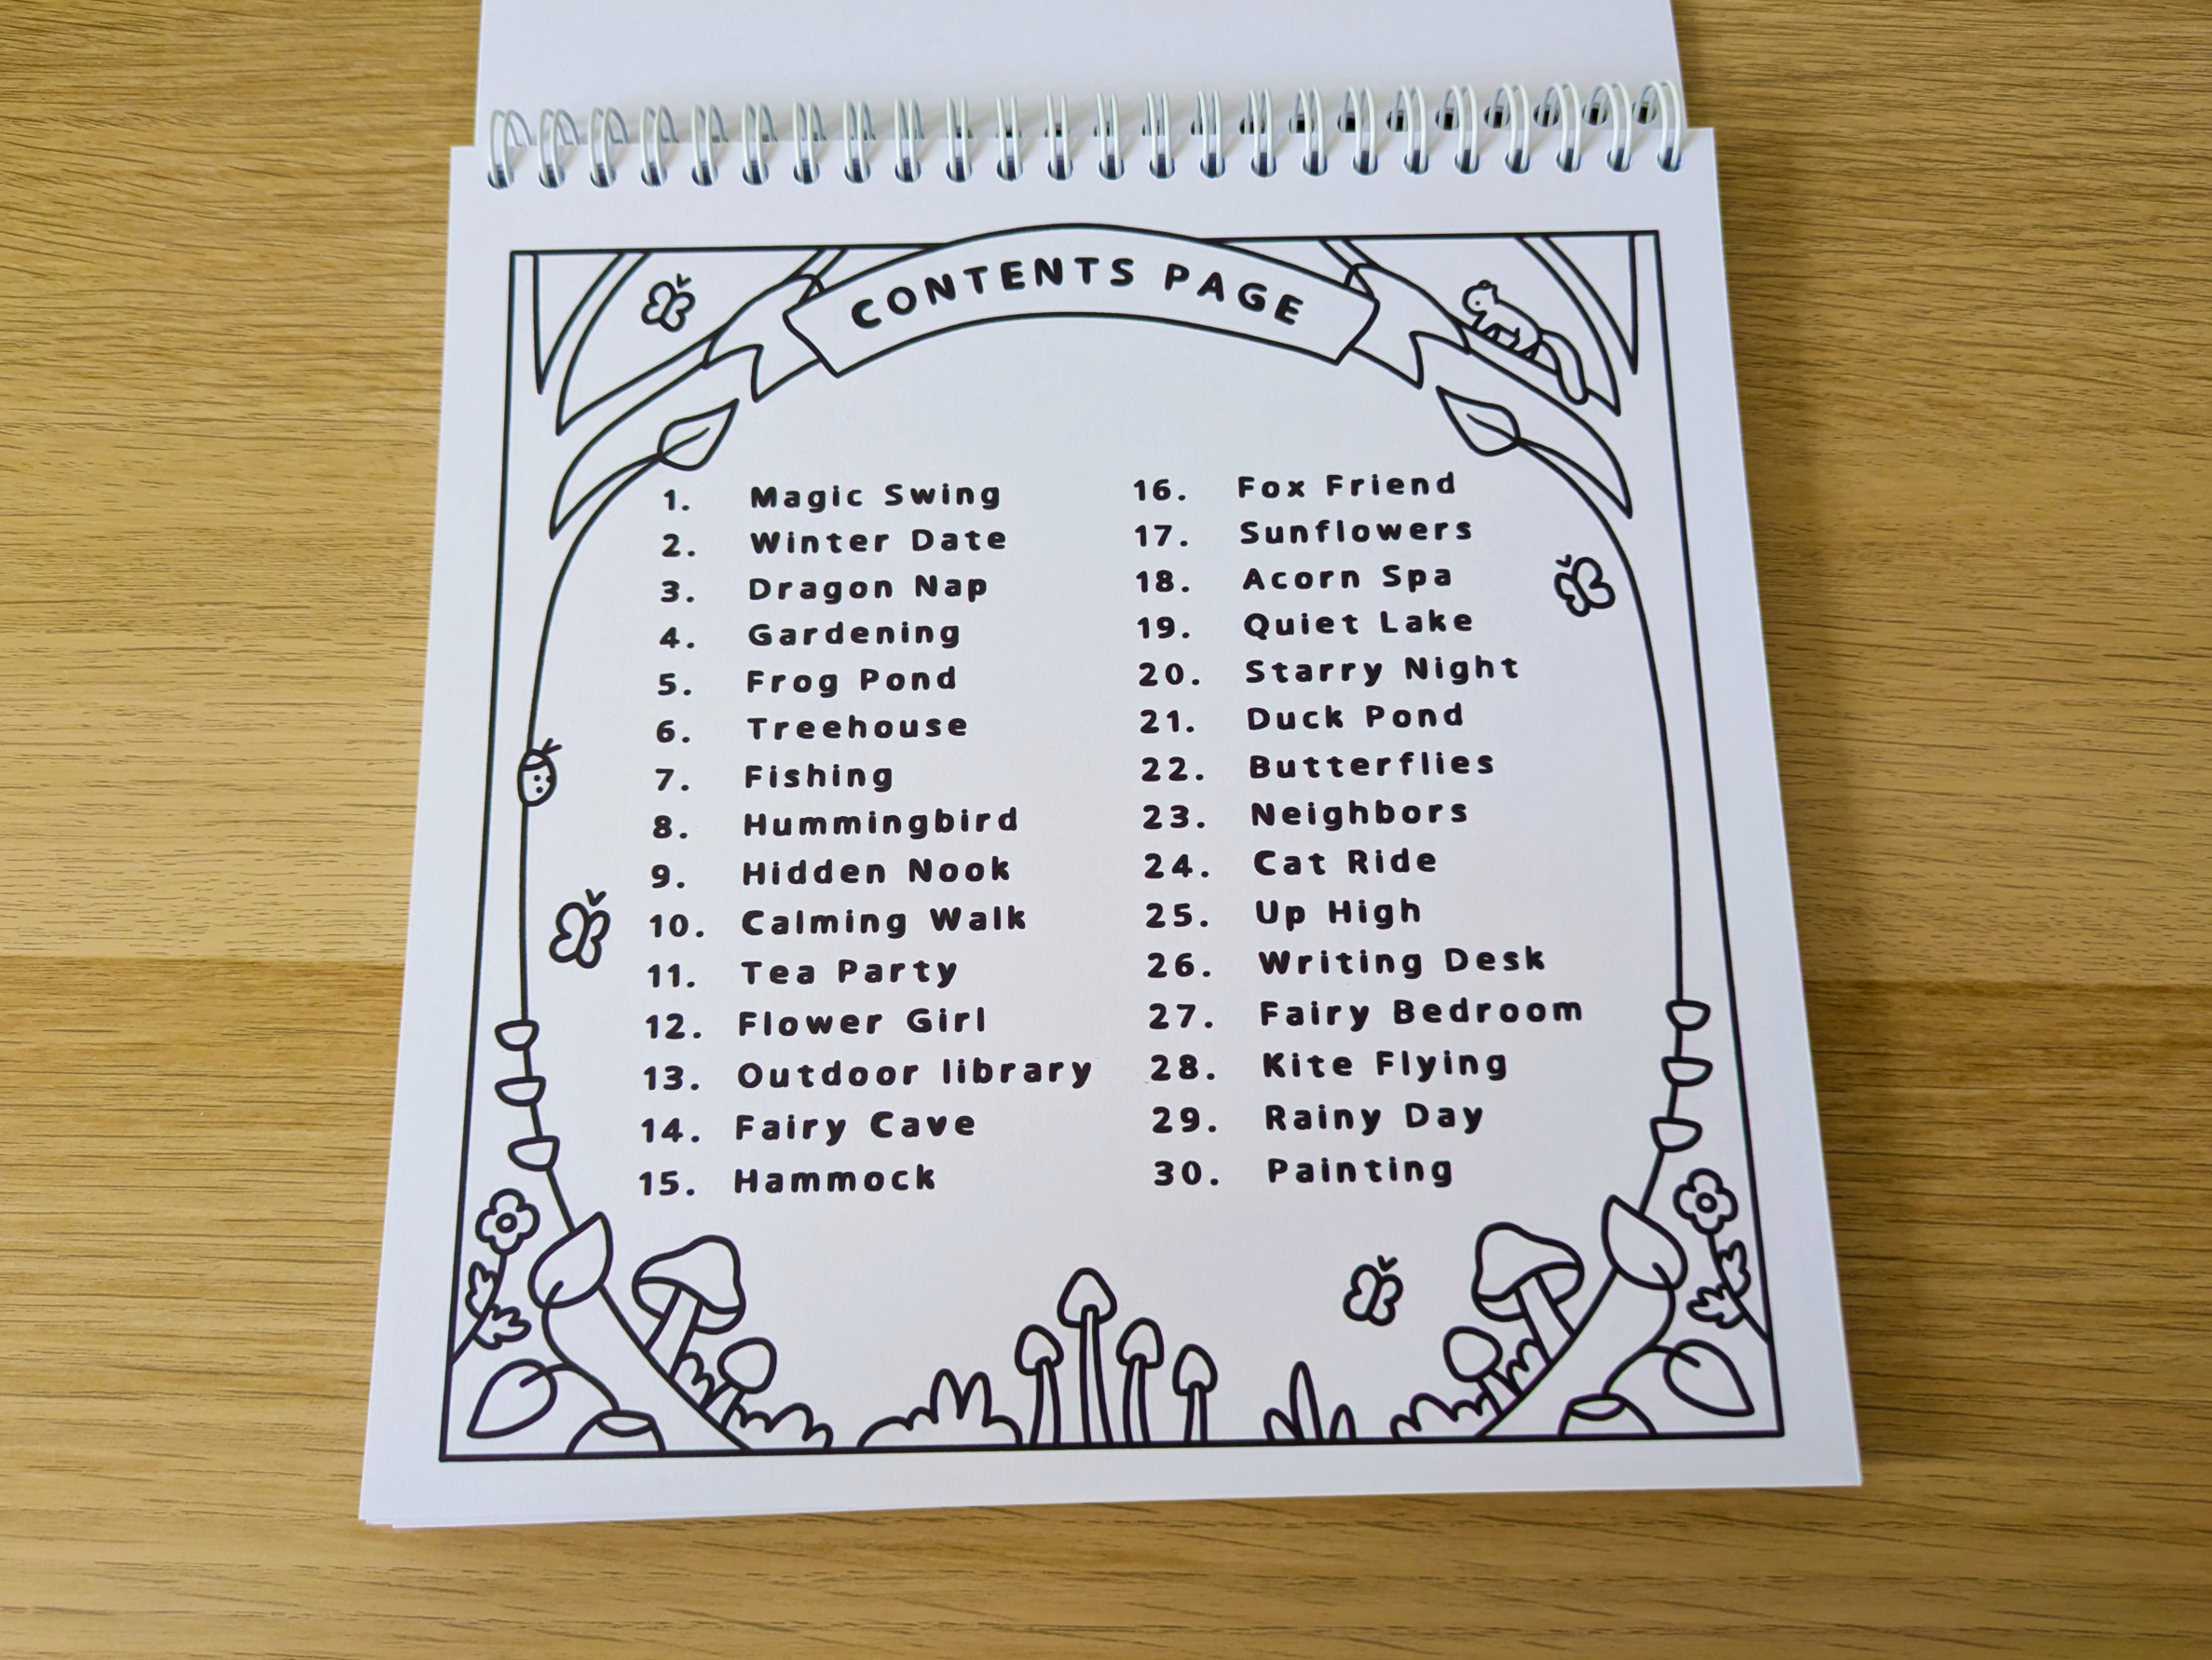 CONTENTS PAGE
1. Magic Swing
2. Winter Date
3. Dragon Nap
4. Gardening
5. Frog Pond
6. Treehouse
7. Fishing
8. Hummingbird
9. Hidden Nook
10. Calming Walk
11. Tea Party
12. Flower Girl
13. Outdoor library
14. Fairy Cave
15. Hammock
16. Fox Friend
17. Sunflowers
18. Acorn Spa
19. Quiet Lake
20. Starry Night
21. Duck Pond
22. Butterflies
23. Neighbors
24. Cat Ride
25. Up High
26. Writing Desk
27. Fairy Bedroom
28. Kite Flying
29. Rainy Day
30. Painting